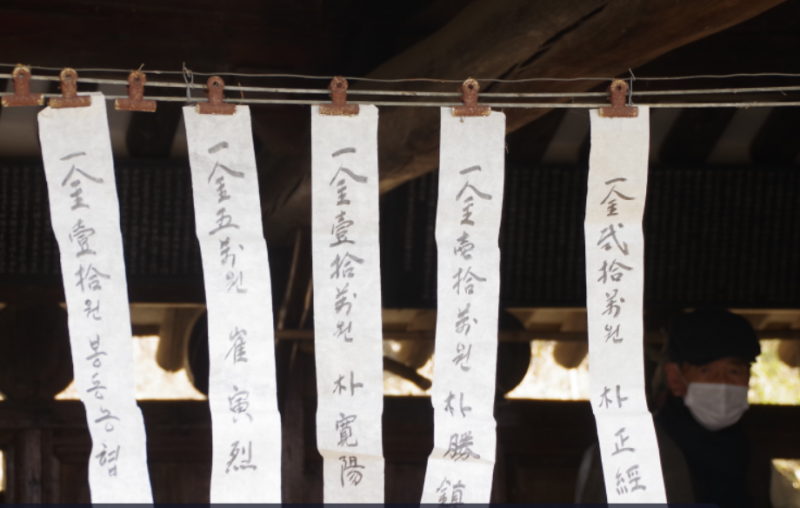 一金壹拾원 봉동농협
一金五萬원 崔寅烈
一金壹拾萬원 朴寬陽
一金壹拾萬원 朴勝鎮
一金弐拾萬원 朴正經